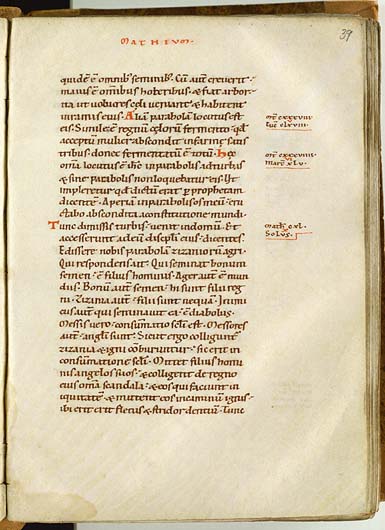 MATHEUM·
39
quidē ē omnib; seminib;. Cū aut̄ creverit·
maius ē omnibus holeribus· & fiat arbor·
ita ut volucres celi veniant & habitent
in ramis eius. Aliam parabolā locutus est
eis. Simile ē regnum celorum fermento· qd̄
acceptū mulier abscondit in farine satis
tribus donec fermentatū ē totū. Hec
omia locutus ē ihc̄ in parabolis ad turbas·
& sine parabolis non loquebatur eis· Ut
impleretur qd̄ dictū erat per prophetam
dicentē· Aperiam in parabolis os meū· eru
ctabo abscondita a constitutione mundi·
Tunc dimissis turbis· venit in domū· Et
accesserunt ad eū discipuli eius· dicentes·
Edissere nobis parabolā zizaniorū agri·
Qui respondens ait· Qui seminat bonum
semen· ē filius hominis· Ager aut̄ ē mun
dus· Bonū aut̄ semen· hi sunt filii reg
ni· Zizania aut̄· filii sunt nequā· Inimi
cus aut̄ qui seminavit ea· ē diabolus·
Messis vero· consūmatio scli est· Messores
aut̄· angli sunt· Sicut ergo colliguntᷣ
zizania & igni cōburuntur· sic erit in
consūmatione scli· Mittet filius homi
nis angelos suos· & colligent de regno
eius omīa scandala· & eos qui faciunt in
iquitatē· & mittent eos in caminū ignis·
ibi erit fletus & stridor dentiū· Tunc
mt̄ cxxxviii
luc̄ clxviii·
mt̄ cxxxviiii·
marc̄ xlv·
math̄ cxl·
Solus·